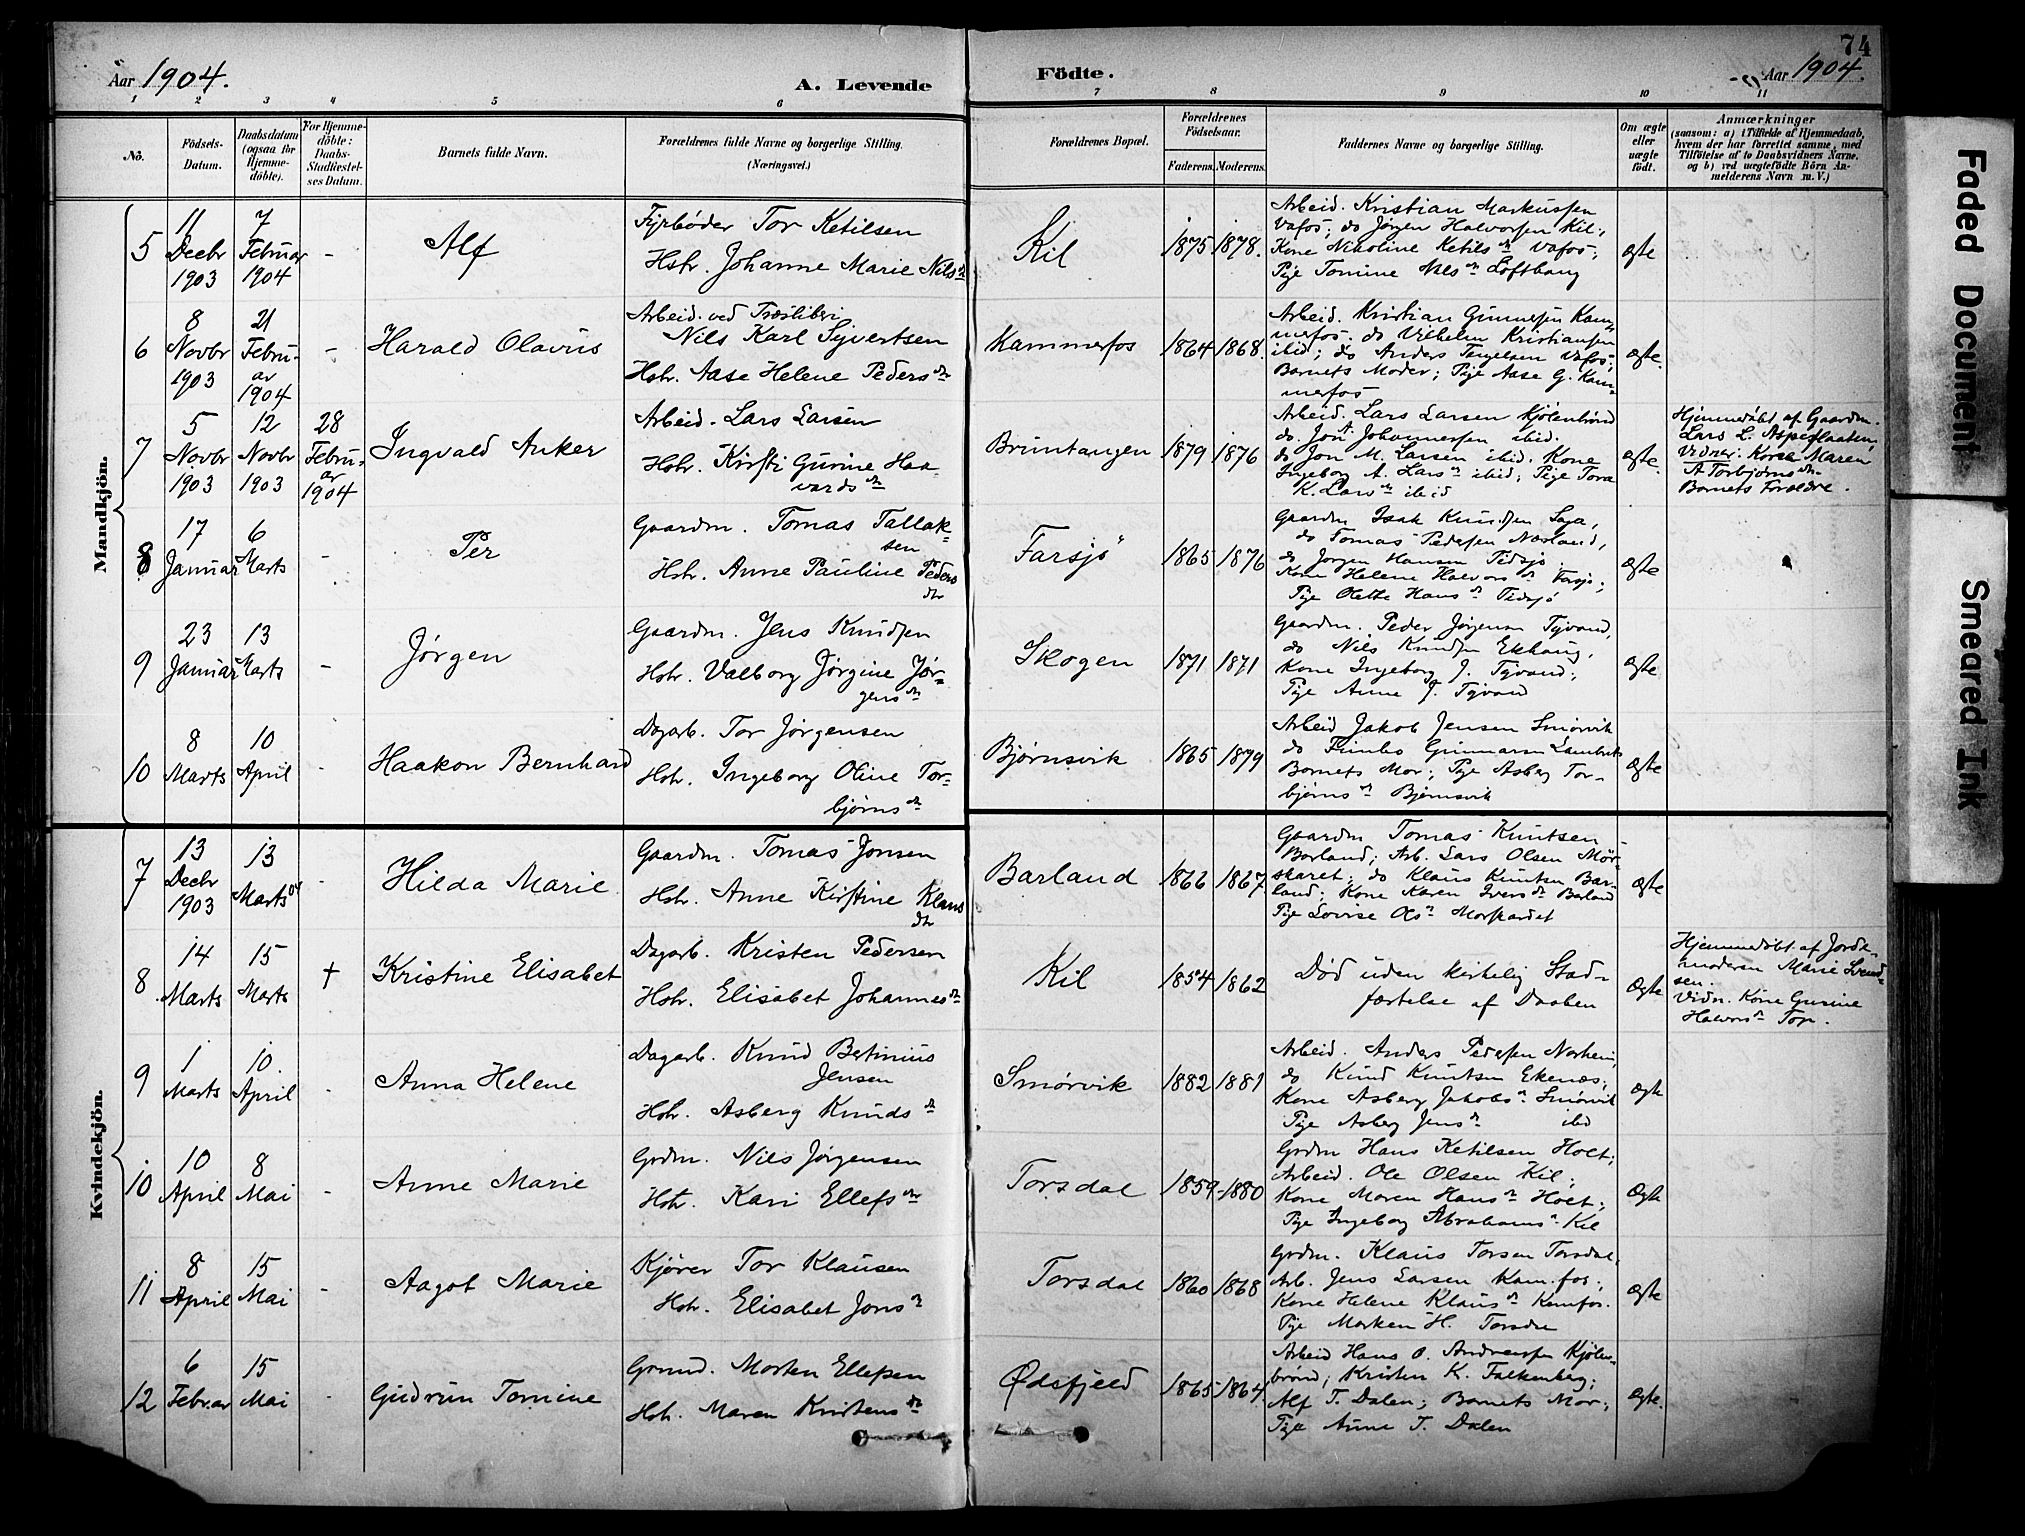 Aar 1904.
A. Levende
Födte.
74
Aar 1904.
1 2 3 4 5 6 7 8 9 10 11
No.
Födsels-
Datum.
Daabsdatum
(ogsaa for
Hjemme-
döbte).
For Hjemme-
döbte:
Daabs-
Stadfæstel-
ses Datum.
Barnets fulde Navn.
Forældrenes fulde Navne og borgerlige Stilling.
(Næringsvei.)
Forældrenes Bopæl.
Forældrenes
Födselsaar.
Faderens. Moderens.
Faddernes Navne og borgerlige Stilling.
Om ægte
eller
uægte
födt.
Anmærkninger
(saasom: a) i Tilfælde af Hjemmedaab,
hvem der har forrettet samme, med
Tilföielse af to Daabsvidners Navne.
og b) ved uægtefödte Börn An-
melderens Navn m. V.)
Mandkjön.
5
11
Decbr
1903
7
Februar
1904
-
Alf
Fyrbøder Tor Ketilsen
Hstr. Johanne Marie Nilsdtr
Kil
1875 1878.
Arbeid. Kristian Markussen
Vafos; do Jørgen Halvorsen Kil;
Kone Nikoline Ketilsdtr Vafos;
Pige Tomine Nilsdtr Loftbaug
ægte
6
8
Novbr
1903
21
Febru-
ar
1904
-
Harald Olavus
Arbeid. ved Træsliberi
Nils Karl Syvertsen
Hstr. Aase Helene Pedersdtr
Kammerfos
1864 1868.
Arbeid. Kristian Gunnersen Kam-
merfos. do Vilhelm Kristiansen
ibid; do Anders Tengelsen Vafos;
Barnets Moder; Pige Aase G. Kam-
merfos
ægte.
7
5
Novbr
1903
12
Novbr
1903
28
Febru-
ar
1904
Ingvald Anker
Arbeid. Lars Larsen
Hstr. Kirsti Gurine Haa-
vardsdtr
Bruntangen
1879 1876
Arbeid. Lars Larsen Kjølenbrønd
do. Jon A. Johannersen ibid.
do Jon M. Larsen ibid. Kone
Ingeborg A. Larsdtr ibid; Pige Tora
K. Larsdtr ibid
ægte.
Hjemmedøbt af Gaardm.
Lars L. Aspeflaaten,
Vidner: Kone Maren
A Torbjørnsdtr.
Barnets Forældre.
8
17
Januar
6
Marts
-
Per
Gaardm. Tomas Tallak-
sen
Hstr. Anne Pauline Peders
dtr
Farsjø
1865 1876
Gaardm Isak Knudsen
do Tomas Pedersen Næsland,
do Jørgen Hansen
Kone Helene Halvorsdtr Farsjø;
Pige Olette Hansdtr
ægte
9
23
Januar
13
Marts
-
Jørgen
Gaardm. Jens Knudsen
Hstr. Valborg Jørgine Jør-
gensdtr
Skogen
1871 1871
Gaardm. Peder Jørgensen Tyvand,
do Nils Knudsen Ekhaug,
Kone Ingeborg J. Tyvand;
Pige Anne J. Tyvand
ægte
10
8
Marts
10
April
-
Haakon Bernhard
Dagarb. Tor Jørgensen
Hstr. Ingeborg Oline Tor-
bjørnsdtr
Bjørnsvik
1865 1879
Arbeid Jakob Jensen Smørvik
do Gunnarsen
Barnets Mor; Pige Asberg Tor-
bjørnsdtr Bjørnsvik
ægte
Kvindekjön.
7
13
Decbr
1903
13
Marts 04
-
Hilda Marie
Gaardm. Tomas Jonsen
Hstr. Anne Kirstine Klaus
dtr
Barland
1866 1867
Gaardm Tomas Knutsen
Barland; Arb. Lars Olsen Mør-
skaret; do Klaus Knutsen Bar-
land; Kone Karen Iversdtr Barland
Pige Lovise Olsdtr Morskardet
ægte
8
14
Marts
15
Marts
†
Kristine Elisabet
Dagarb. Kristen Pedersen
Hstr. Elisabet Johannesdtr
Kil
1854 1862
Død uden kirkelig Stad-
fæstelse af Daaben
Ægte
Hjemmedøbt af Jorde-
moderen Marie Svend-
sen.
Vidn. Kone Gurine
Halvorsdtr Top.
9
1
Marts
10
April
-
Anna Helene
Dagarb. Knud Bertinius
Jensen
Hstr. Asberg Knudsdtr
Smørvik
1882 1881
Arbeid. Anders Pedersen Norheim,
do Knud Knutsen Ekenæs;
Kone Asberg Jakobsdtr Smørvik
Pige Asberg Jensdtr ibid
ægte
10
10
April
8
Mai
-
Anne Marie
Grdm. Nils Jørgensen
Hstr. Kari Ellefsdtr
Torsdal
1859 1880
Grdm Hans Ketilsen Holt;
Arbeid. Ole Olsen Kil;
Kone Maren Hansdtr Holt;
Pige Ingeborg Abrahamsdtr Kil
Ægte
11
8
April
15
Mai
-
Aagot Marie
Kjører Tor Klausen
Hstr. Elisabet Jonsdtr
Torsdal
1860 1868
Grdm. Klaus Torsen Torsdal,
Arb. Jens Larsen Kam.fos;
Kone Helene Klausdtr Kamfos.
Pige Marken H. Torsdal
ægte
12
6
Februar
15
Mai
-
Gudrun Tomine
Grund. Morten Ellefsen
Hstr. Maren Kristensdtr
Ødefjeld
1865 1864.
Arbeid Hans O. Andreassen Kjølen-
brønd; Kristen K. Falkenberg;
Alf T. Dalen; Barnets Mor;
Pige Anne T. Dalen
ægte.
Faded Document
Smeared Ink